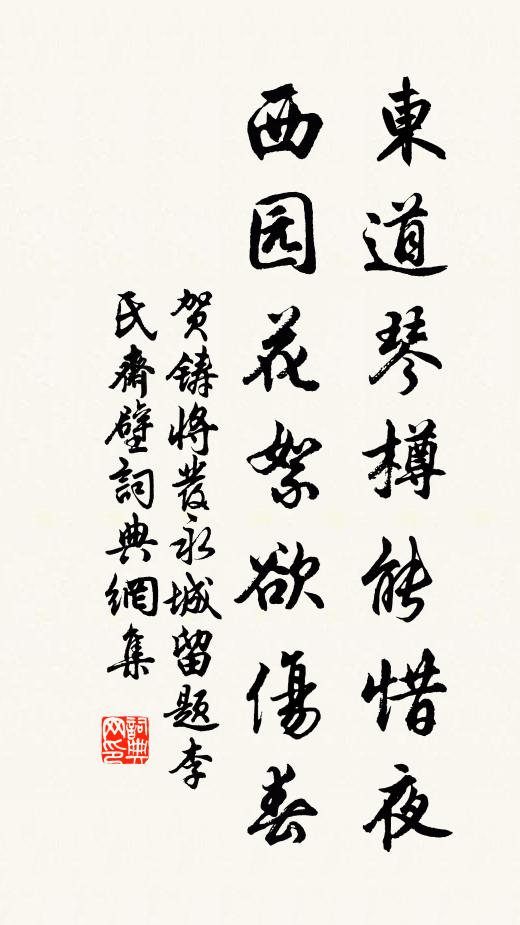 東道琴樽能惜夜
西园花絮欲傷春
贺鑄將發永城留題李
氏齋壁詞典網集
詞典网印